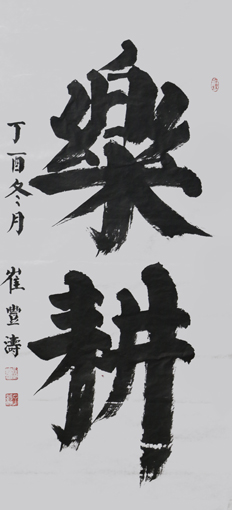 樂耕
丁酉冬月
崔豐濤